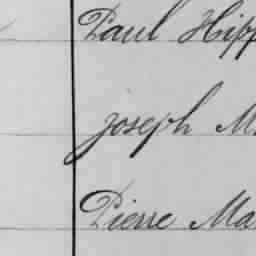 Paul Hipp
Joseph M
Pierre Ma